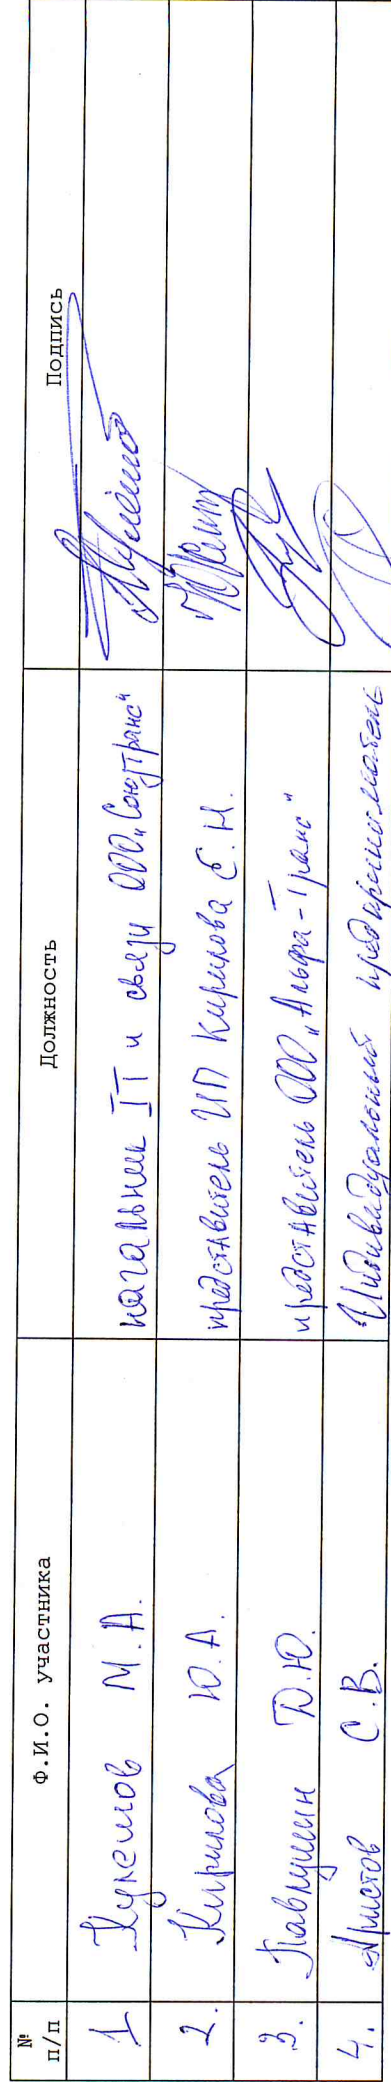 № п/п Ф.И.О. участника Должность Подпись
1 М.А. начальник IT и связи ООО „Союзтранс“
2. Кирилова Ю.А. представитель ИП Кирилова Е.Н.
3. Павлушин Д.Ю. представитель ООО „Альфа-Транс“
4. Аристов С.В. Индивидуальный предприниматель